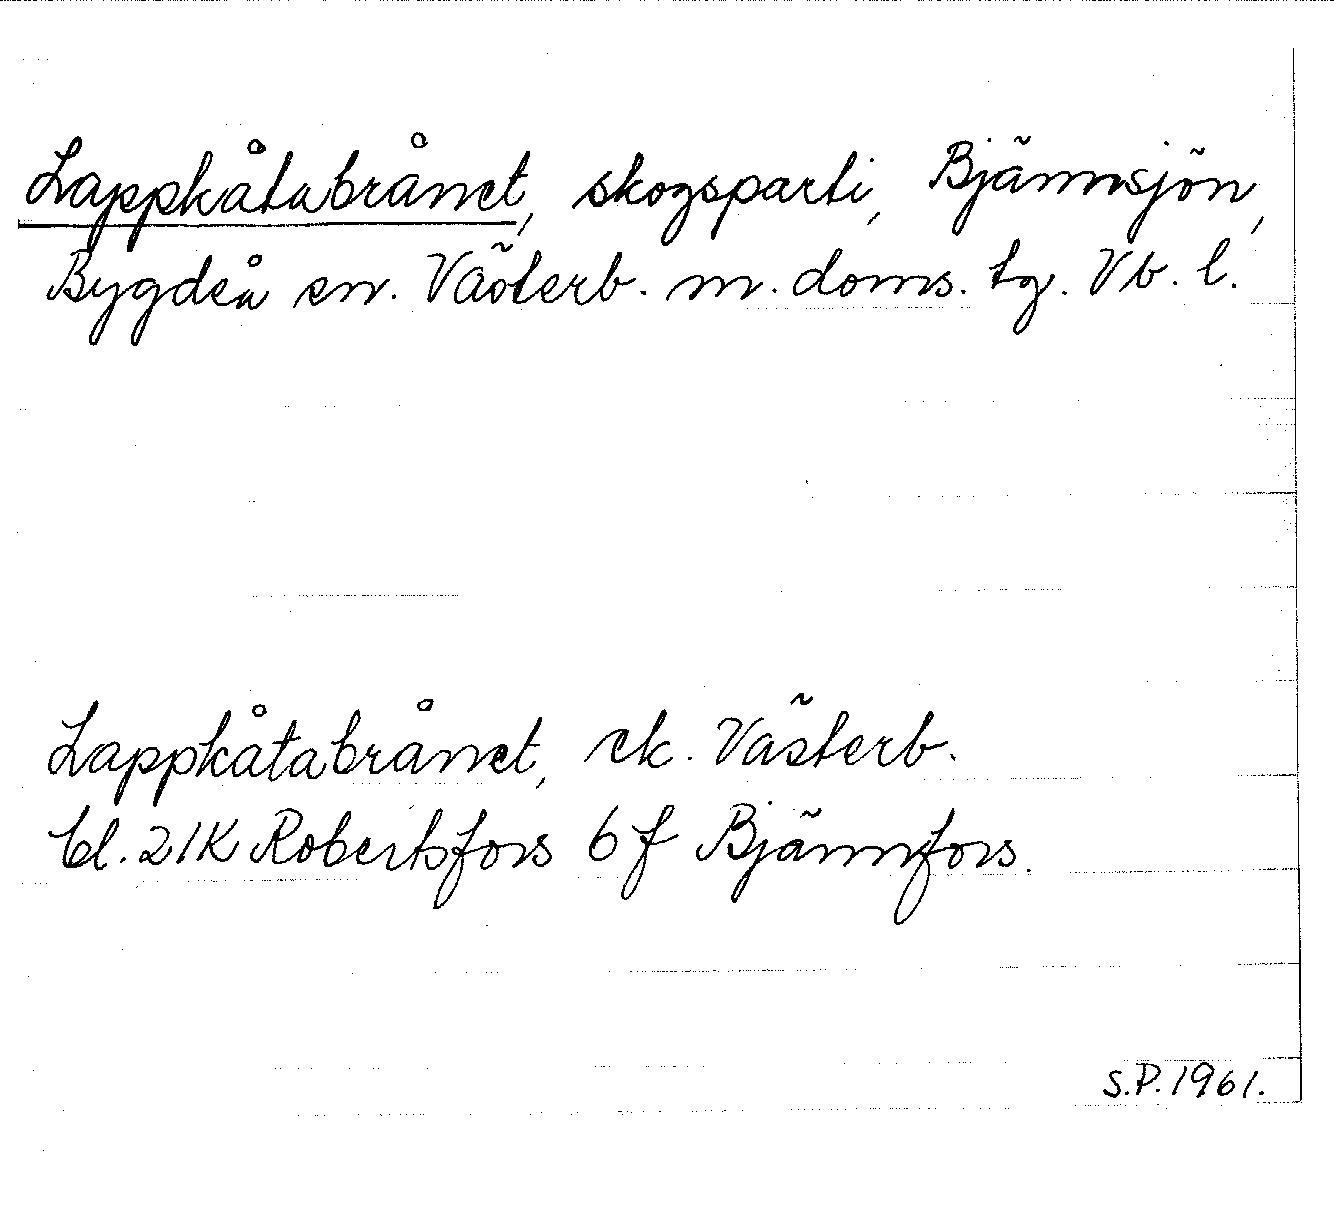 Lappkåtabrånet, skogsparti, Bjännsjön,
Bygdeå sn. Västerb. m. doms. tg. Vb. l.
Lappkåtabrånet, ek. Västerb.
bl. 21K Robertsfors 6f Bjännfors.
S.P. 1961.